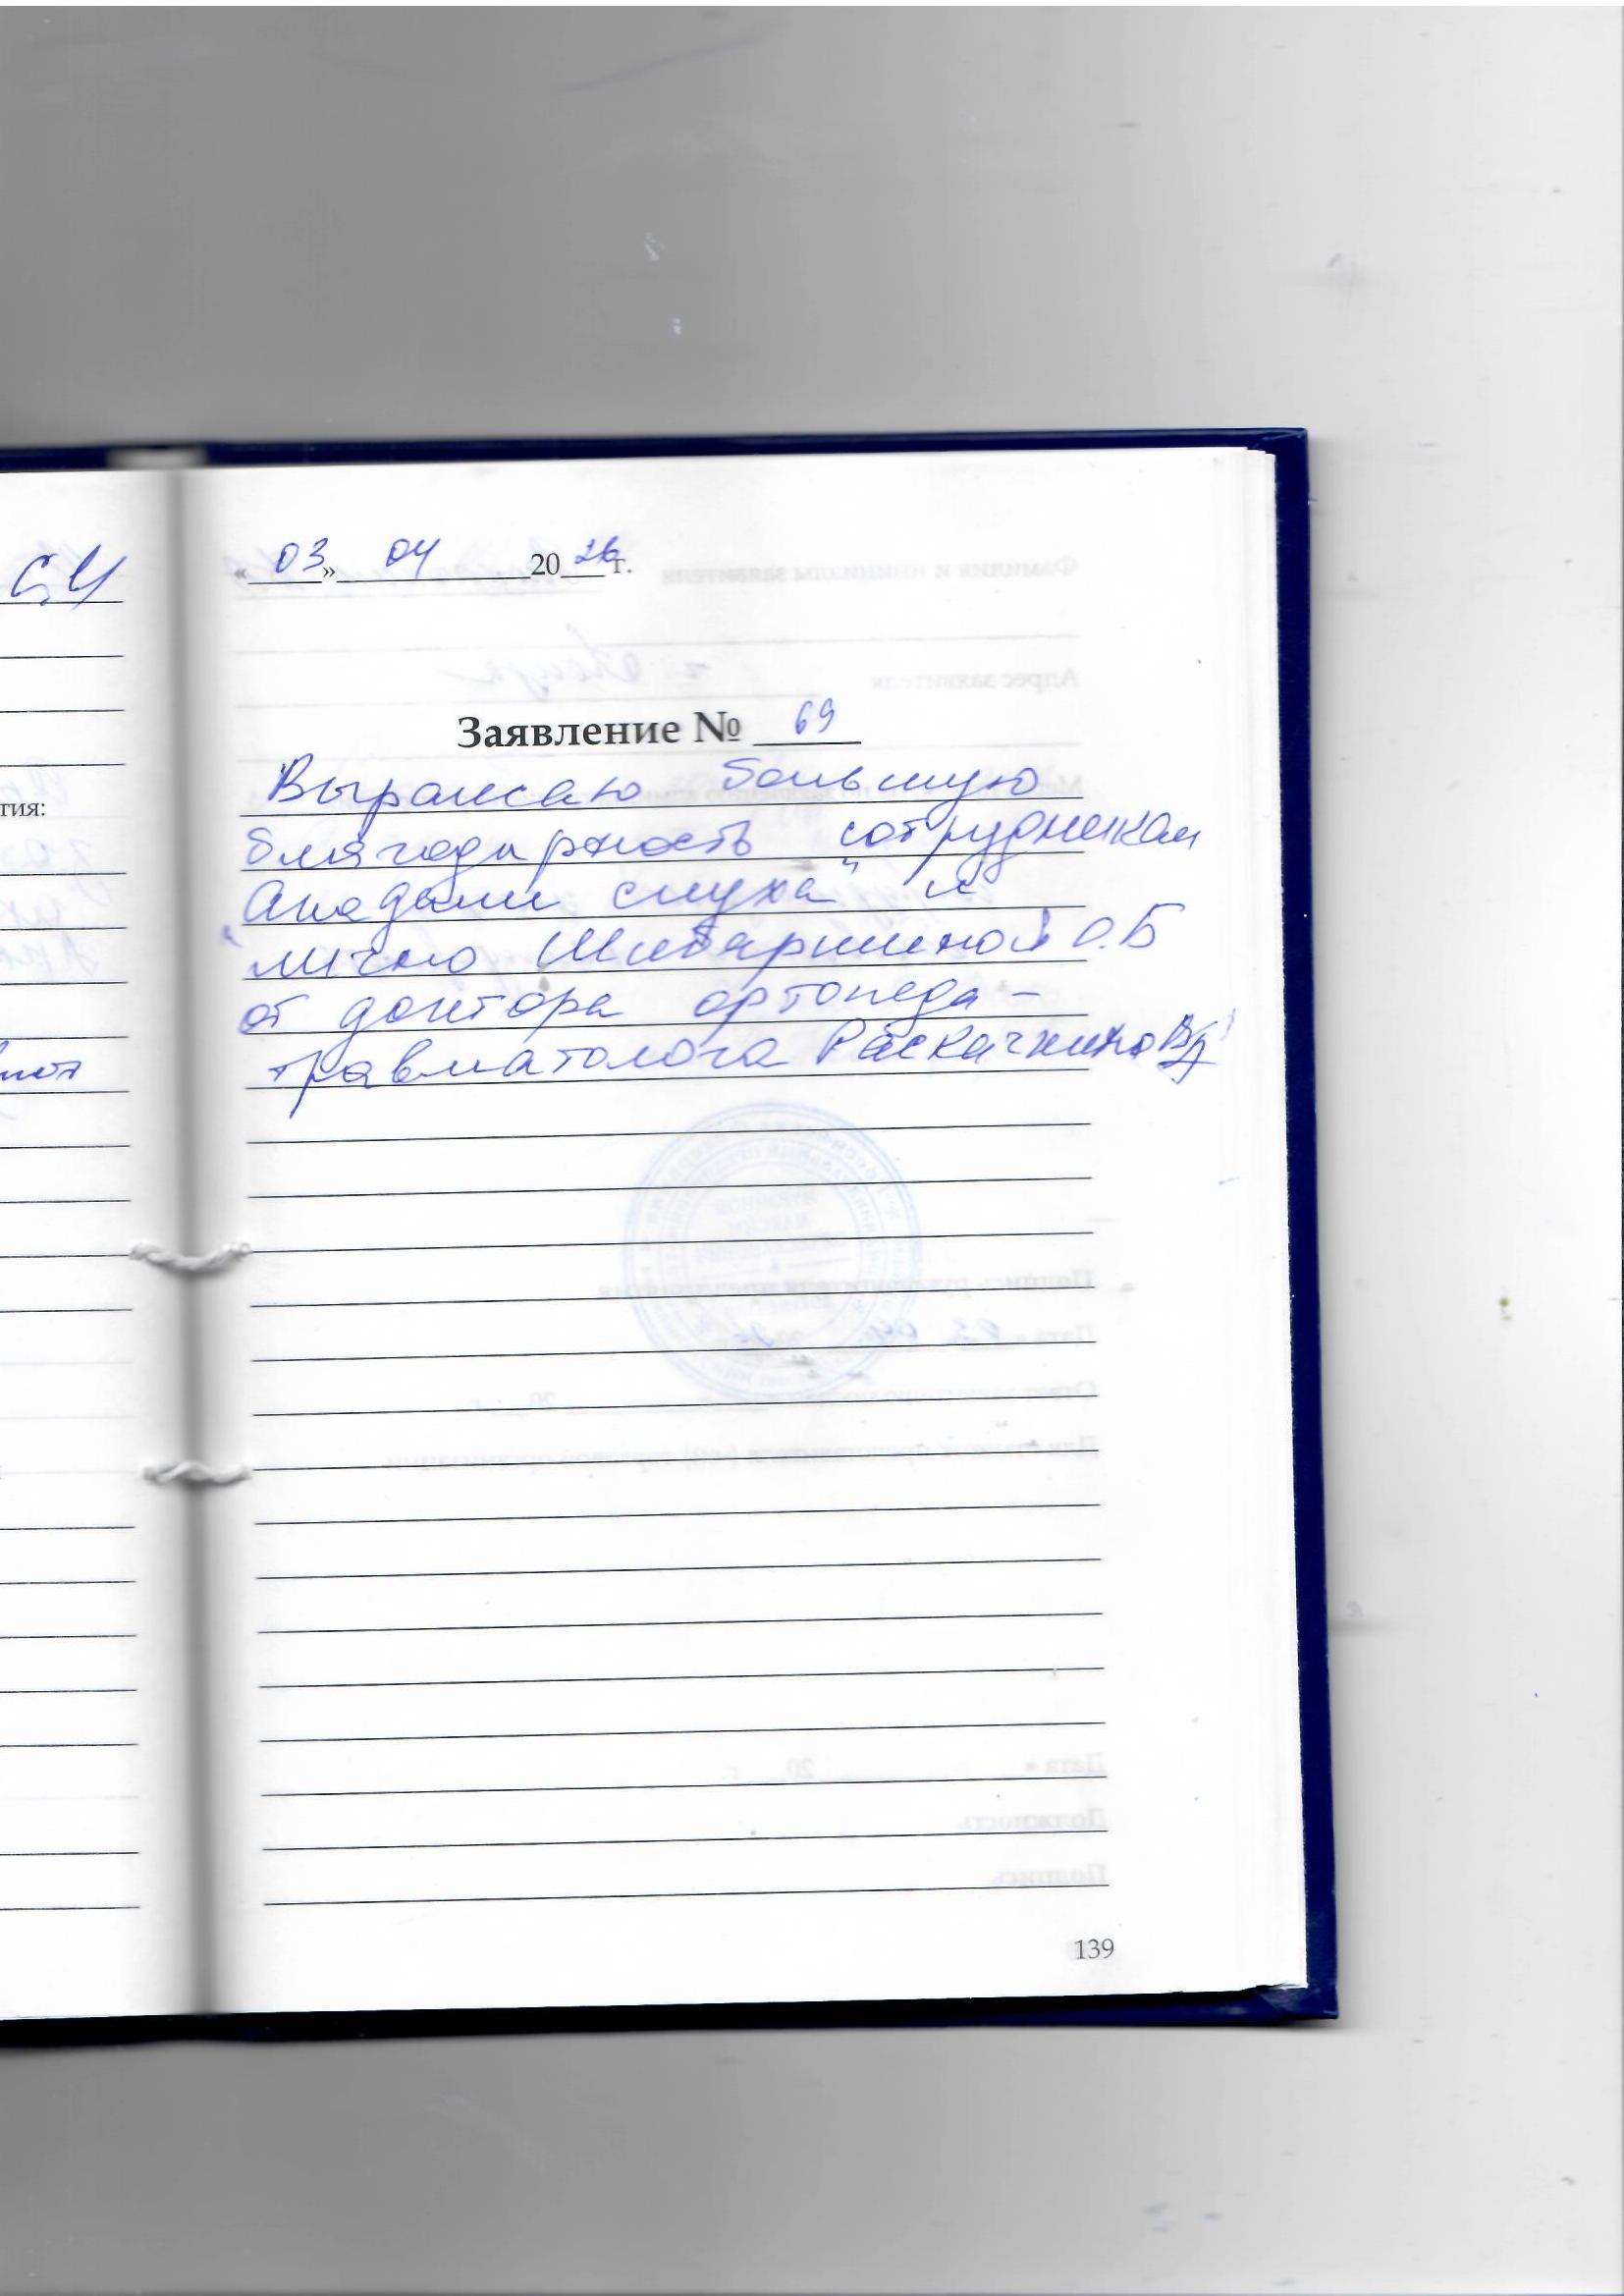 С.И
тия:
«03» 04 2026 г.
Заявление № 69
Выражаю большую
благодарность сотрудникам
"Академии слуха" и
лично Шибаршиной О.Б
от доктора ортопеда-
травматолога
139